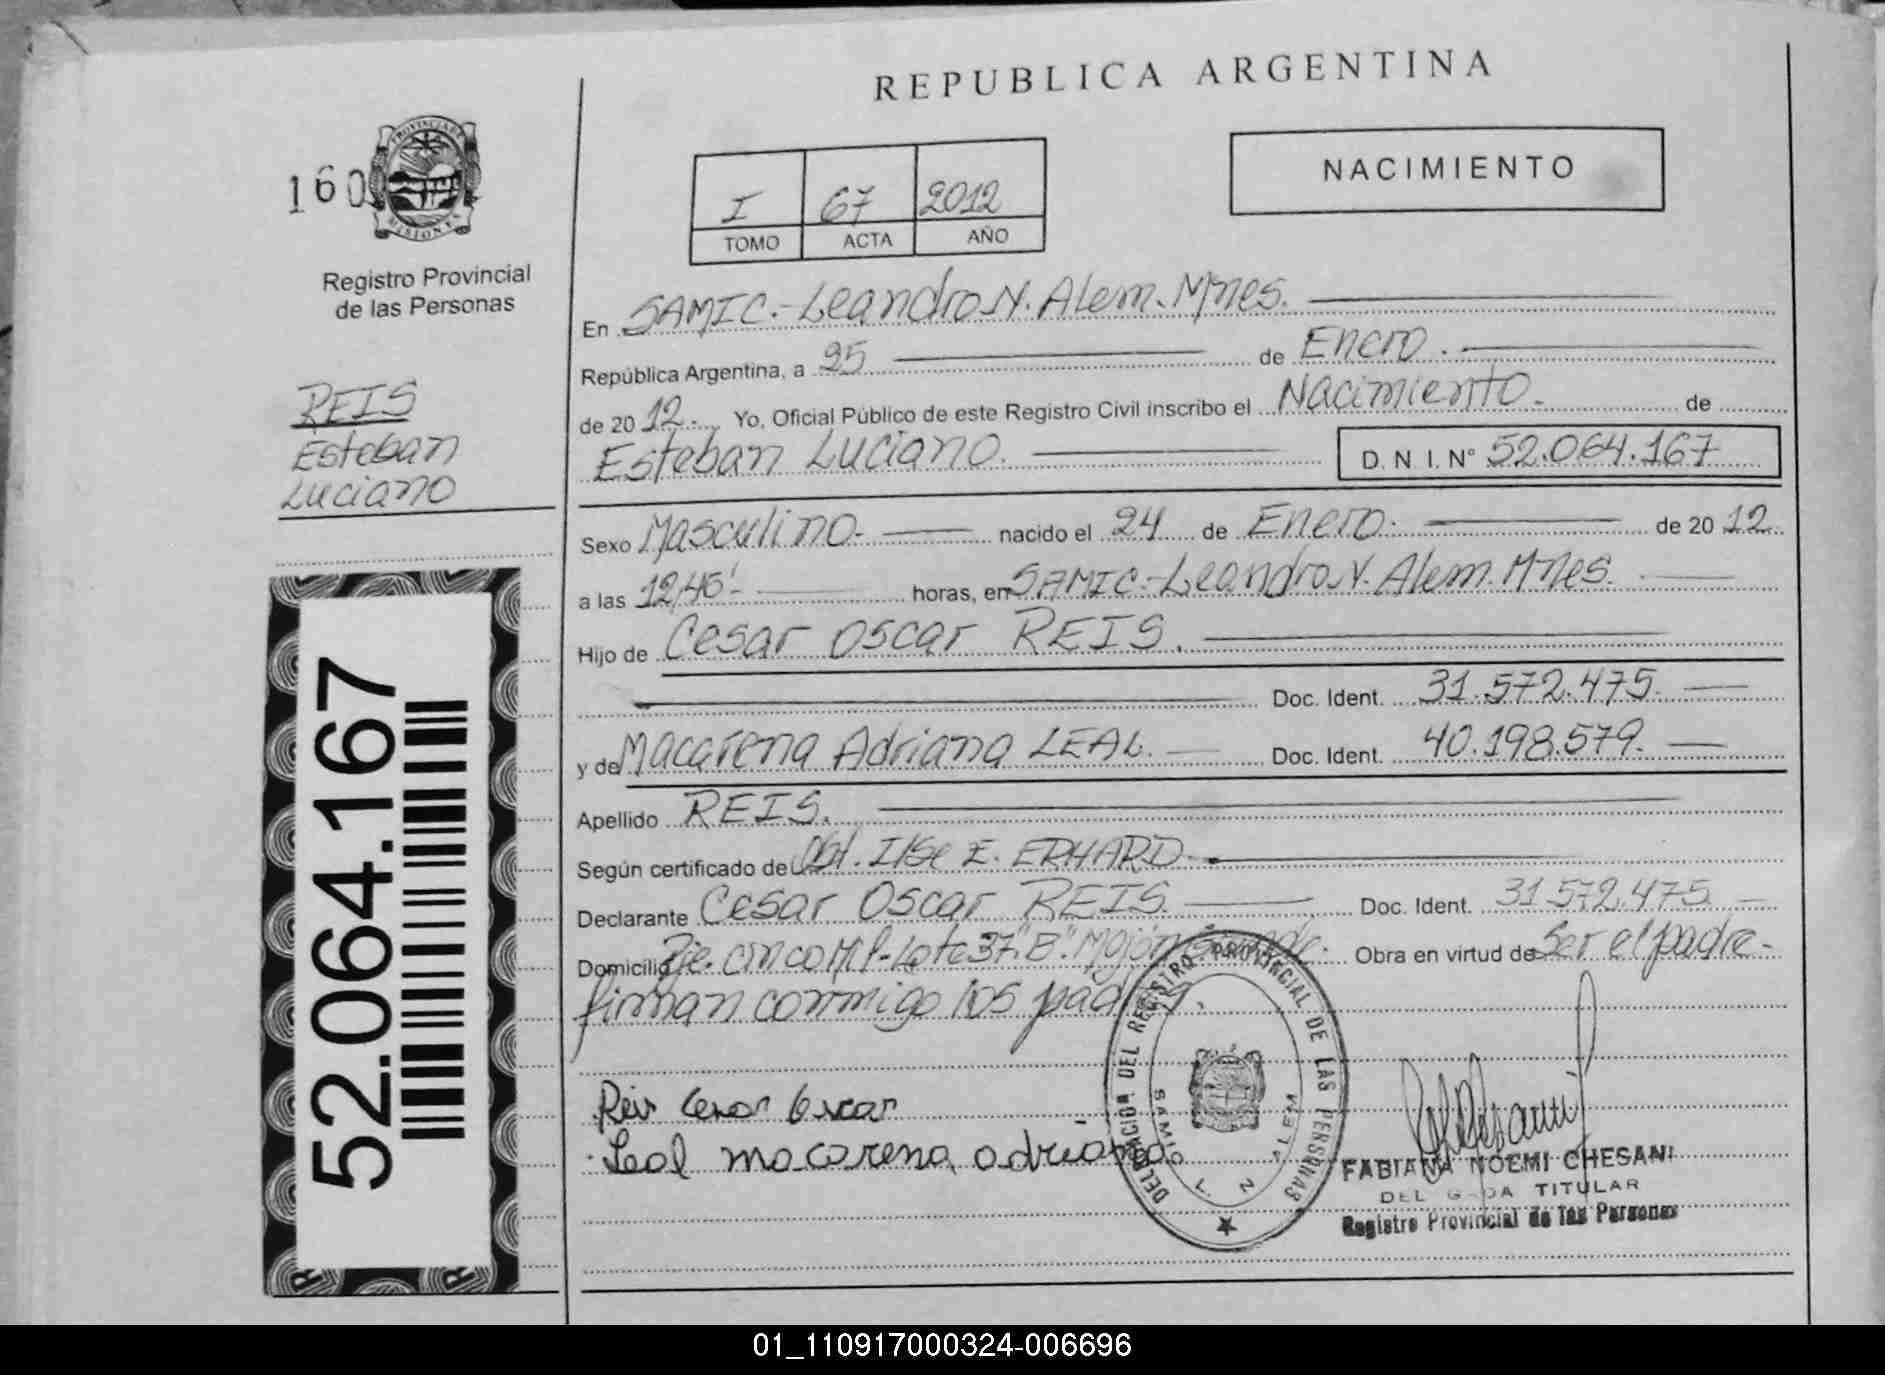 REPUBLICA ARGENTINA
160
PROVINCIA DE MISIONES
Registro Provincial
de las Personas
I 67 2012
TOMO ACTA AÑO
NACIMIENTO
REIS
Esteban
Luciano
52.064.167
En SAMIC.-Leandro N. Alem. Mnes.
República Argentina, a 25 de Enero.
de 20 12.- Yo, Oficial Público de este Registro Civil inscribo el Nacimiento. de
Esteban Luciano. D. N. I. N° 52.064.167
Sexo Masculino.- nacido el 24 de Enero. de 20 12.
a las 12,45'- horas, en SAMIC.-Leandro N. Alem. Mnes.
Hijo de Cesar Oscar REIS.
Doc. Ident. 31.572.475.
y de Macarena Adriana LEAL. Doc. Ident. 40.198.579.
Apellido REIS.
Según certificado de Obst. Ilse E. ERHARD.
Declarante Cesar Oscar REIS. Doc. Ident. 31.572.475
Domicilio Pje. Cinco Mil-Lote 37."B". Mojón Grande. Obra en virtud de Ser el padre.-
firman conmigo los padres.
Reis Cesar Oscar
Leal macarena adriana
DELEGACION DEL REGISTRO PROVINCIAL DE LAS PERSONAS
SAMIC L. N. ALEM
FABIANA NOEMI CHESANI
DELEGADA TITULAR
Registro Provincial de las Personas
01_110917000324-006696